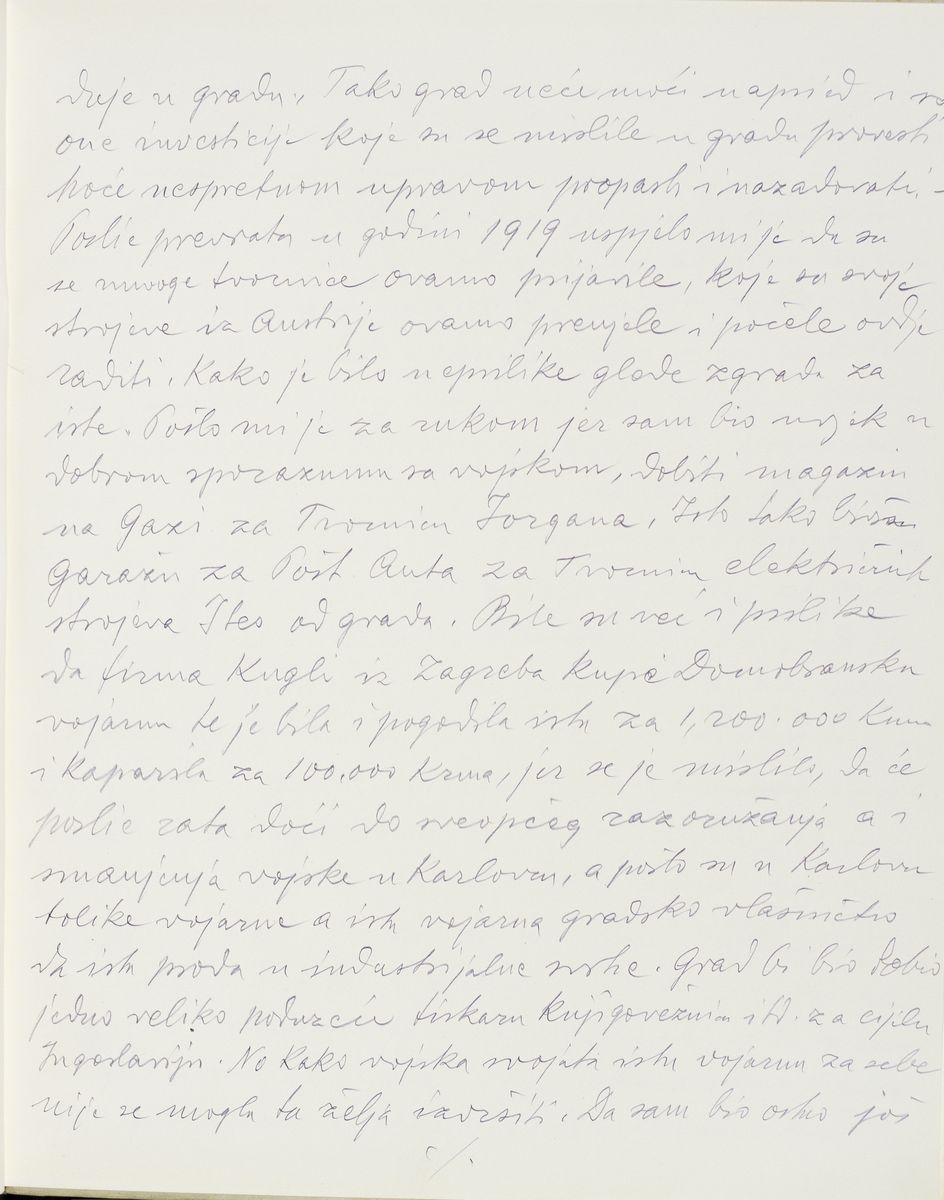 duje u gradu. Tako grad neće moći napried i sve
one investicije koje su se mislile u gradu provesti
hoće nespretnom upravom propasti i nazadovati. -
Poslie prevrata u godini 1919 uspjelo mi je da su
se mnoge tvornice ovamo prijavile, koje su svoje
strojeve iz Austrije ovamo prenjele i počele ovdje
raditi. Kako je bilo neprilike glede zgrada za
iste. Pošlo mi je za rukom jer sam bio uvjek u
dobrom sporazumu sa vojskom, dobiti magazin
na Gazi za Tvornicu Jorgana, Isto tako bivšu
Garažu za Pošt. Auta za Tvornicu električnih
strojeva Ites od grada. Bile su već i prilike
da firma Kugli iz Zagreba kupi Domobransku
vojarnu te je bila i pogodila istu za 1,200.000 Kuna
i kaparila za 100.000 Kruna, jer se je mislilo, da će
poslie rata doći do sveopćeg razoružanja a i
smanjenja vojske u Karlovcu, a pošto su u Karlovcu
tolike vojarne a ista vojarna gradsko vlasničtvo
da istu proda u industrijalne svrhe. Grad bi bio dobio
jedno veliko poduzeće tiskaru knjigovežnicu itd. za cijelu
Jugoslaviju. No kako vojska svojata istu vojarnu za sebe
nije se mogla ta želja izvršiti. Da sam bio ostao još
./.